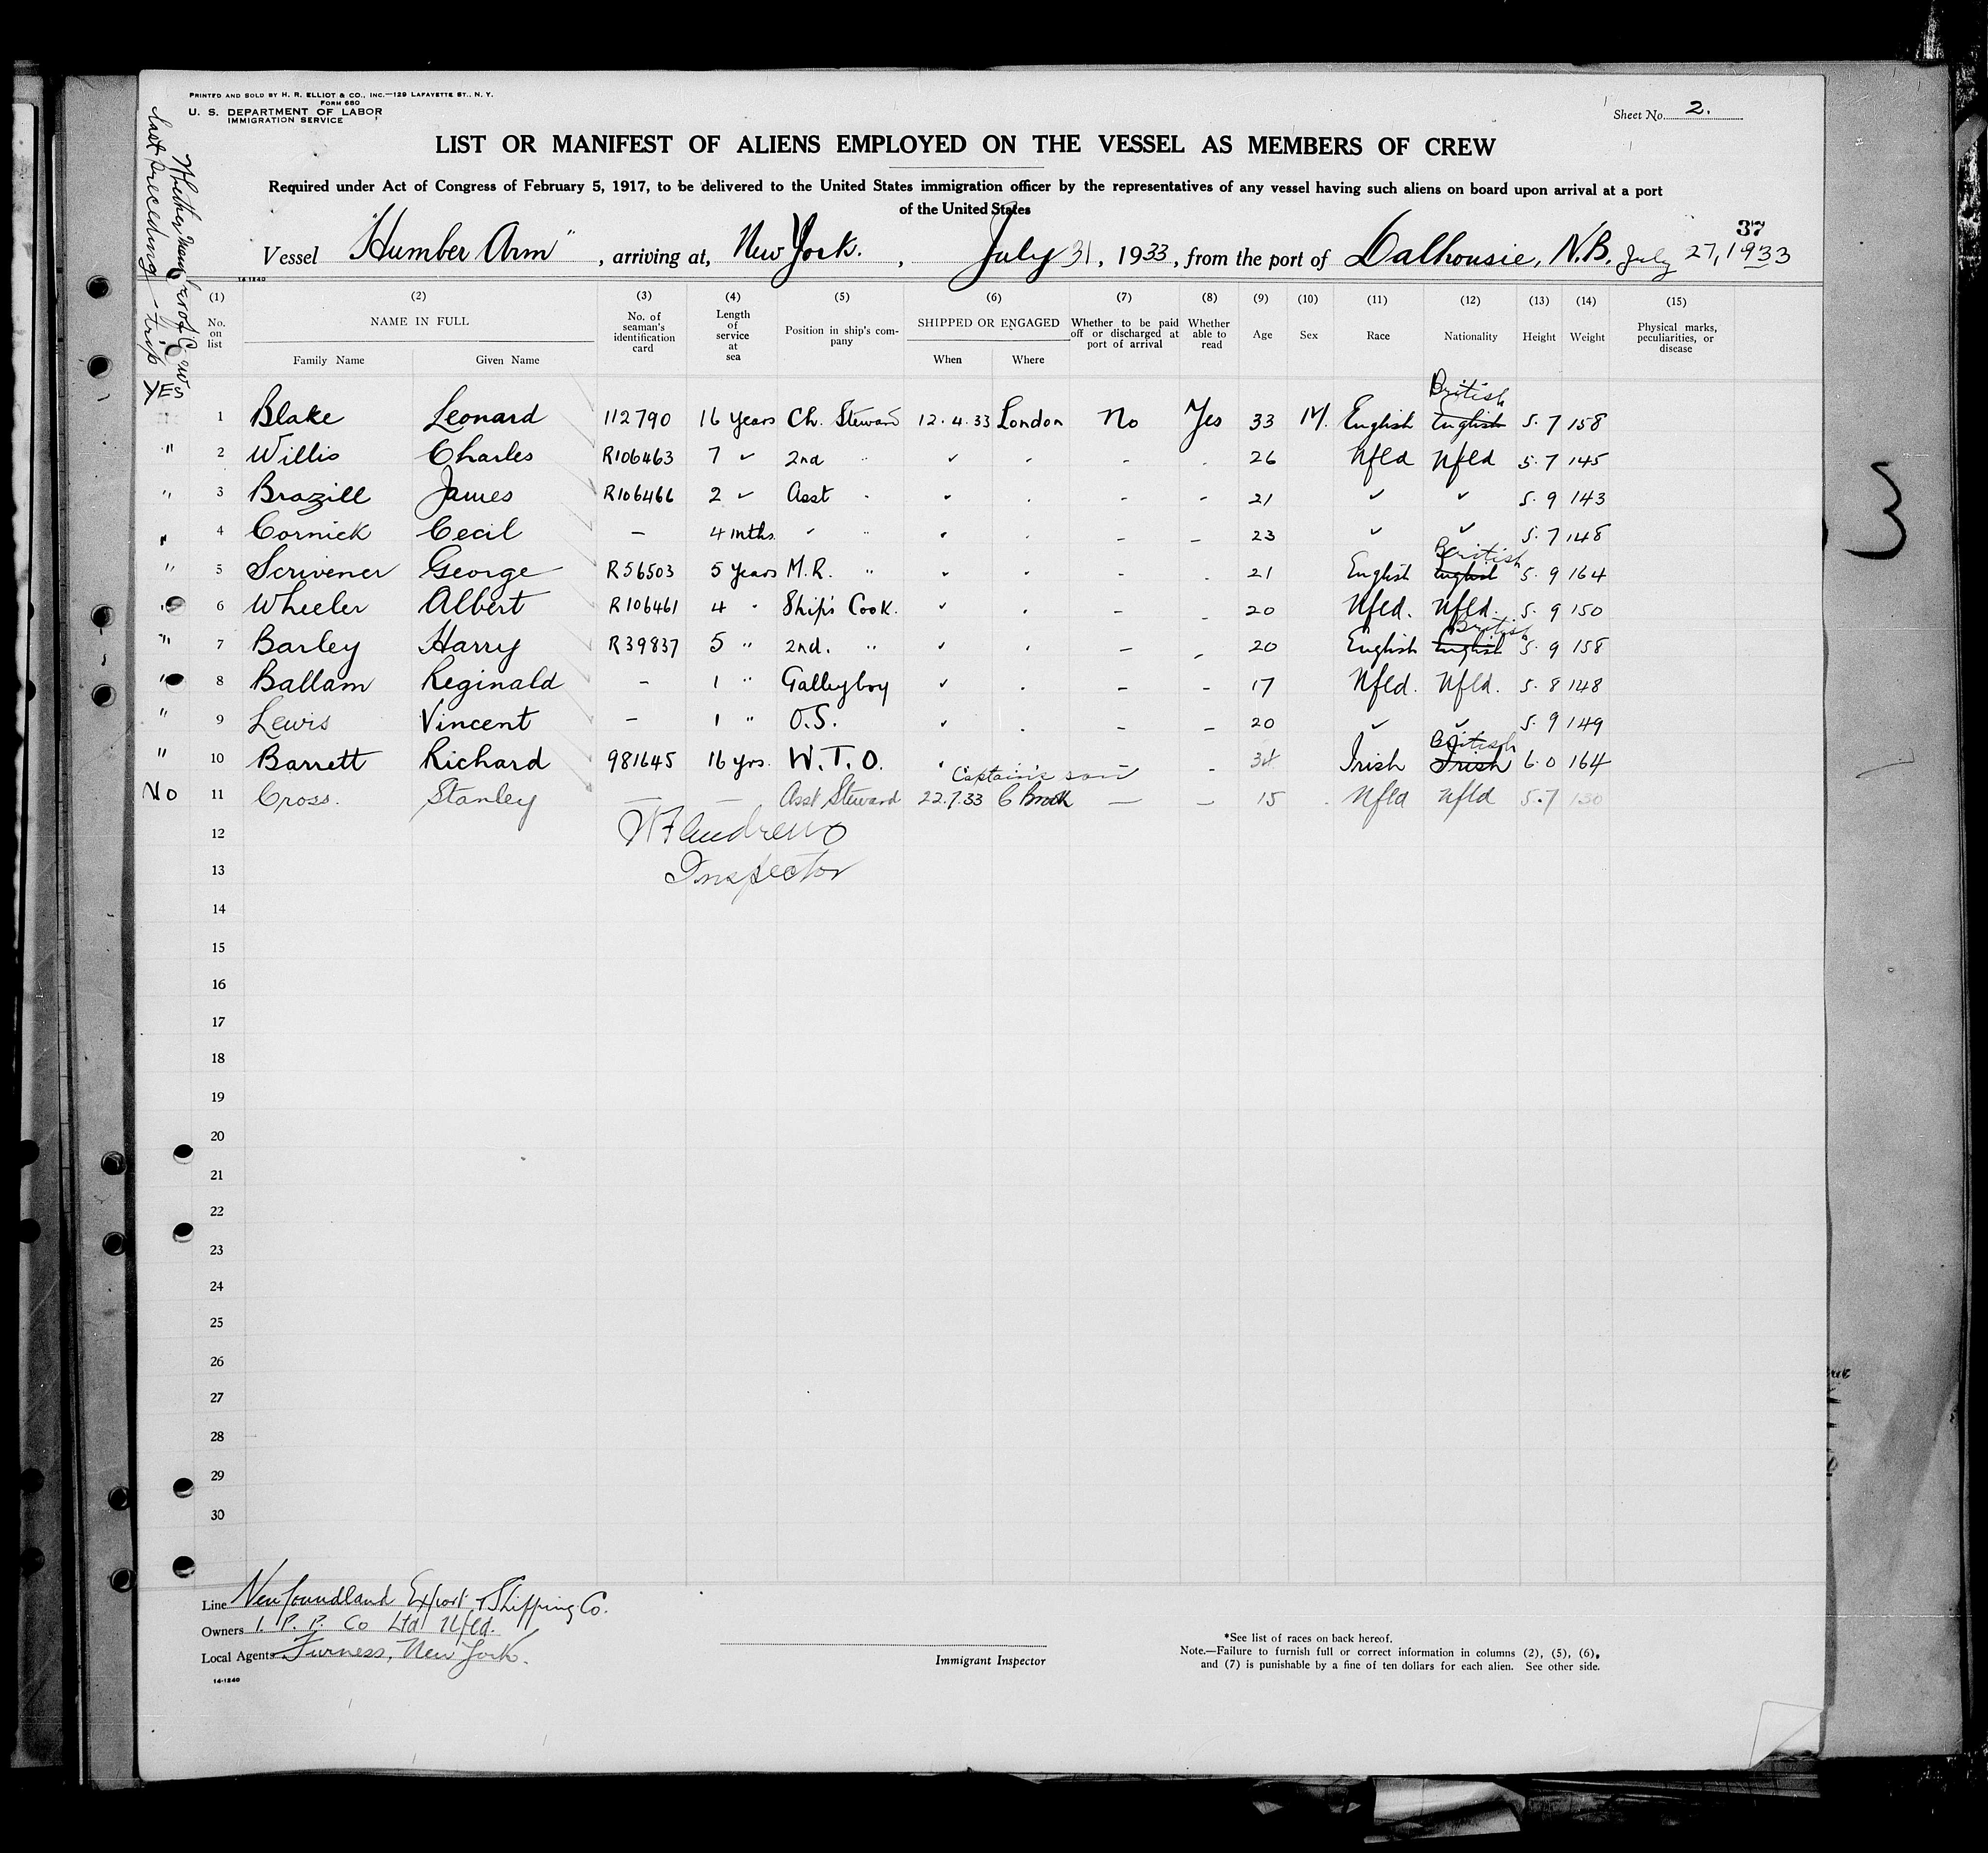 PRINTED AND SOLD BY H. R. ELLIOT & CO., INC.—129 LAFAYETTE ST., N. Y.
FORM 680
U. S. DEPARTMENT OF LABOR
IMMIGRATION SERVICE
Sheet No. 2.
Whether Member of Crew
last Preceding trip
LIST OR MANIFEST OF ALIENS EMPLOYED ON THE VESSEL AS MEMBERS OF CREW
Required under Act of Congress of February 5, 1917, to be delivered to the United States immigration officer by the representatives of any vessel having such aliens on board upon arrival at a port
of the United States
37
Vessel "Humber Arm", arriving at, New York., July 31, 1933, from the port of Dalhousie, N.B. July 27, 1933
14-1240
(1) (2) (3) (4) (5) (6) (7) (8) (9) (10) (11) (12) (13) (14) (15)
No. on list NAME IN FULL Family Name Given Name No. of seaman's identification card Length of service at sea Position in ship's company SHIPPED OR ENGAGED When Where Whether to be paid off or discharged at port of arrival Whether able to read Age Sex Race Nationality Height Weight Physical marks, peculiarities, or disease
YES 1 Blake Leonard 112790 16 Years Ch. Steward 12.4.33 London No Yes 33 M. English English British 5.7 158
" 2 Willis Charles R106463 7 ✓ 2nd " ✓ - - 26 Nfld Nfld 5.7 145
" 3 Brazill James R106466 2 ✓ Asst - - - 21 ✓ ✓ 5.9 143
" 4 Cornick Cecil - 4 mths. " - - 23 ✓ ✓ 5.7 148
" 5 Scrivener George R56503 5 Years M.R. " - - 21 English English British 5.9 164
" 6 Wheeler Albert R106461 4 " Ship's Cook. ✓ - - 20 Nfld. Nfld. 5.9 150
" 7 Barley Harry R39837 5 " 2nd. " ✓ - - 20 English English British 5.9 158
" 8 Ballam Reginald - 1 " Galleyboy ✓ - - 17 Nfld. Nfld. 5.8 148
" 9 Lewis Vincent - 1 " O.S. ✓ - - 20 ✓ ✓ 5.9 149
" 10 Barrett Richard 981645 16 yrs. W.T.O. - 34 Irish Irish British 6.0 164
Captain's son
No 11 Cross. Stanley - - Asst Steward 22.7.33 C Brook - - 15 Nfld Nfld 5.7 130
12
W F Andrews
13
Inspector
14
15
16
17
18
19
20
21
22
23
24
25
26
27
28
29
30
Line Newfoundland Export & Shipping Co.
Owners I. P. P. Co Ltd Nfld.
Local Agents Furness, New York.
14-1240
Immigrant Inspector
*See list of races on back hereof.
Note.—Failure to furnish full or correct information in columns (2), (5), (6),
and (7) is punishable by a fine of ten dollars for each alien. See other side.
3